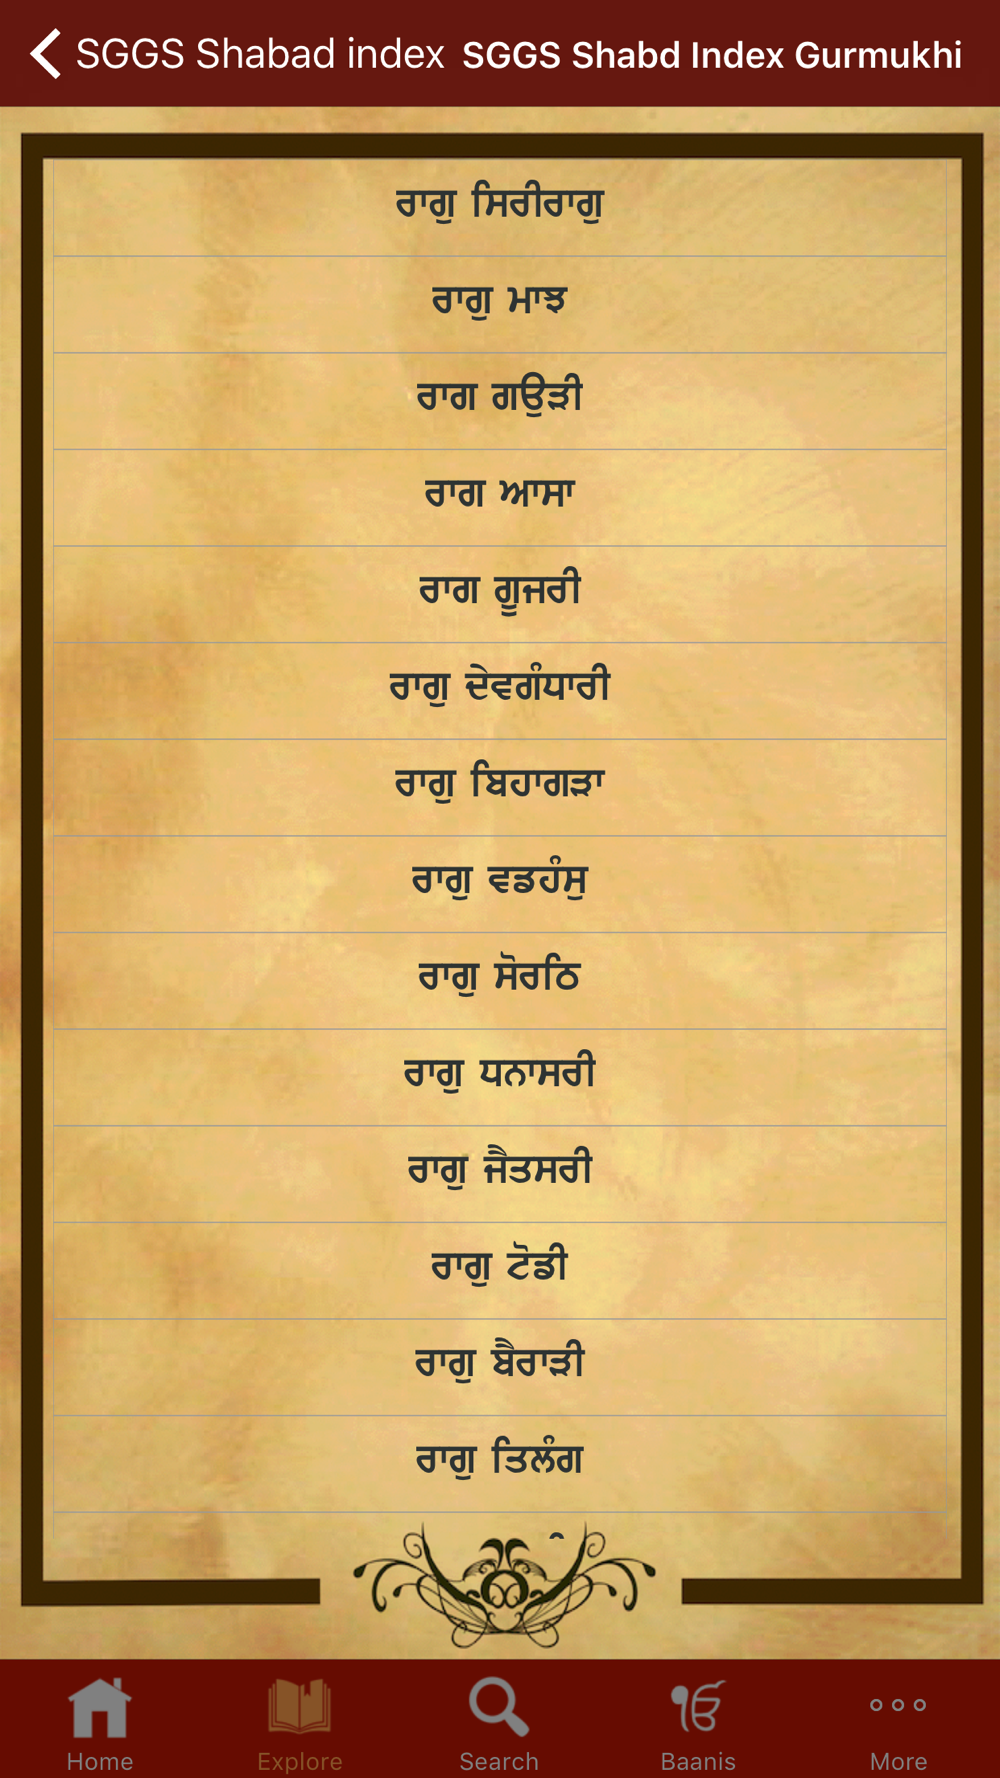 SGGS Shabad index SGGS Shabd Index Gurmukhi
ਰਾਗੁ ਸਿਰੀਰਾਗੁ
ਰਾਗੁ ਮਾਝ
ਰਾਗ ਗਉੜੀ
ਰਾਗ ਆਸਾ
ਰਾਗ ਗੂਜਰੀ
ਰਾਗੁ ਦੇਵਗੰਧਾਰੀ
ਰਾਗੁ ਬਿਹਾਗੜਾ
ਰਾਗੁ ਵਡਹੰਸੁ
ਰਾਗੁ ਸੋਰਠਿ
ਰਾਗੁ ਧਨਾਸਰੀ
ਰਾਗੁ ਜੈਤਸਰੀ
ਰਾਗੁ ਟੋਡੀ
ਰਾਗੁ ਬੈਰਾੜੀ
ਰਾਗੁ ਤਿਲੰਗ
ੴ
Home Explore Search Baanis More